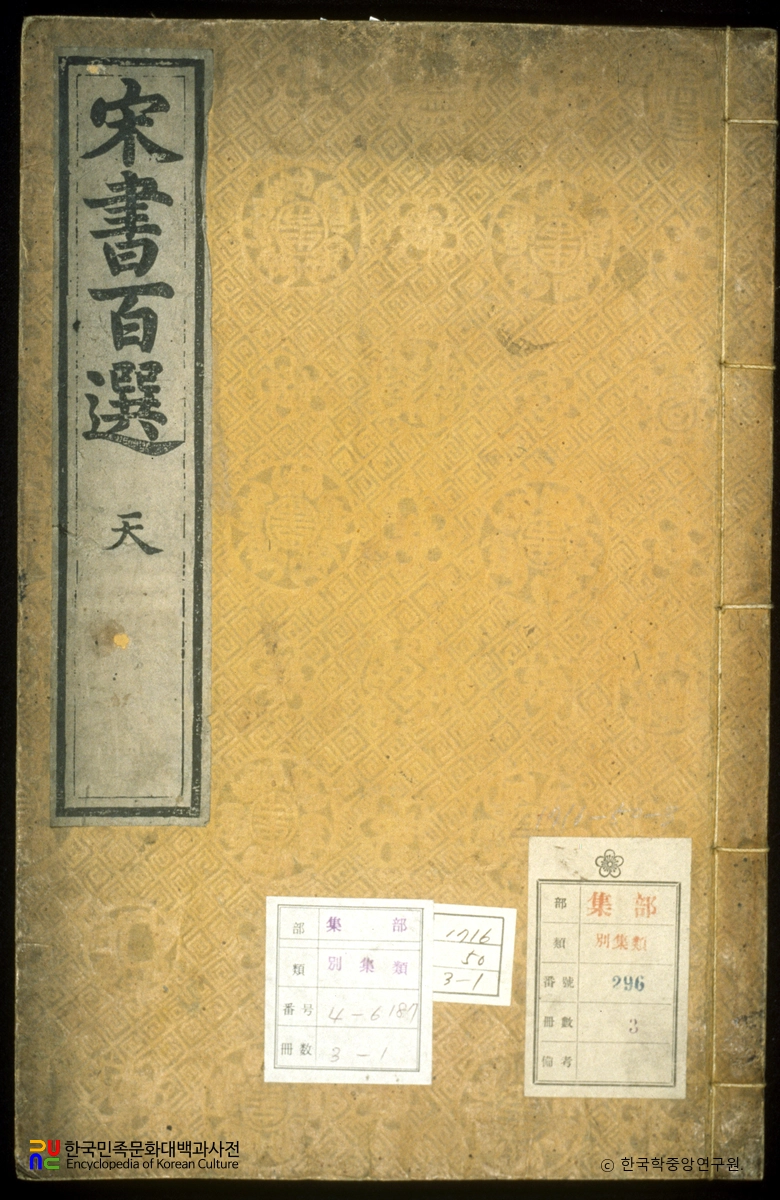 朱書百選
天
部 集 部
類 別集類
番号 4-6 187
冊数 3-1
1716
50
3-1
部 集 部
類 別集類
番號 296
冊數 3
備考
한국민족문화대백과사전
Encyclopedia of Korean Culture
© 한국학중앙연구원